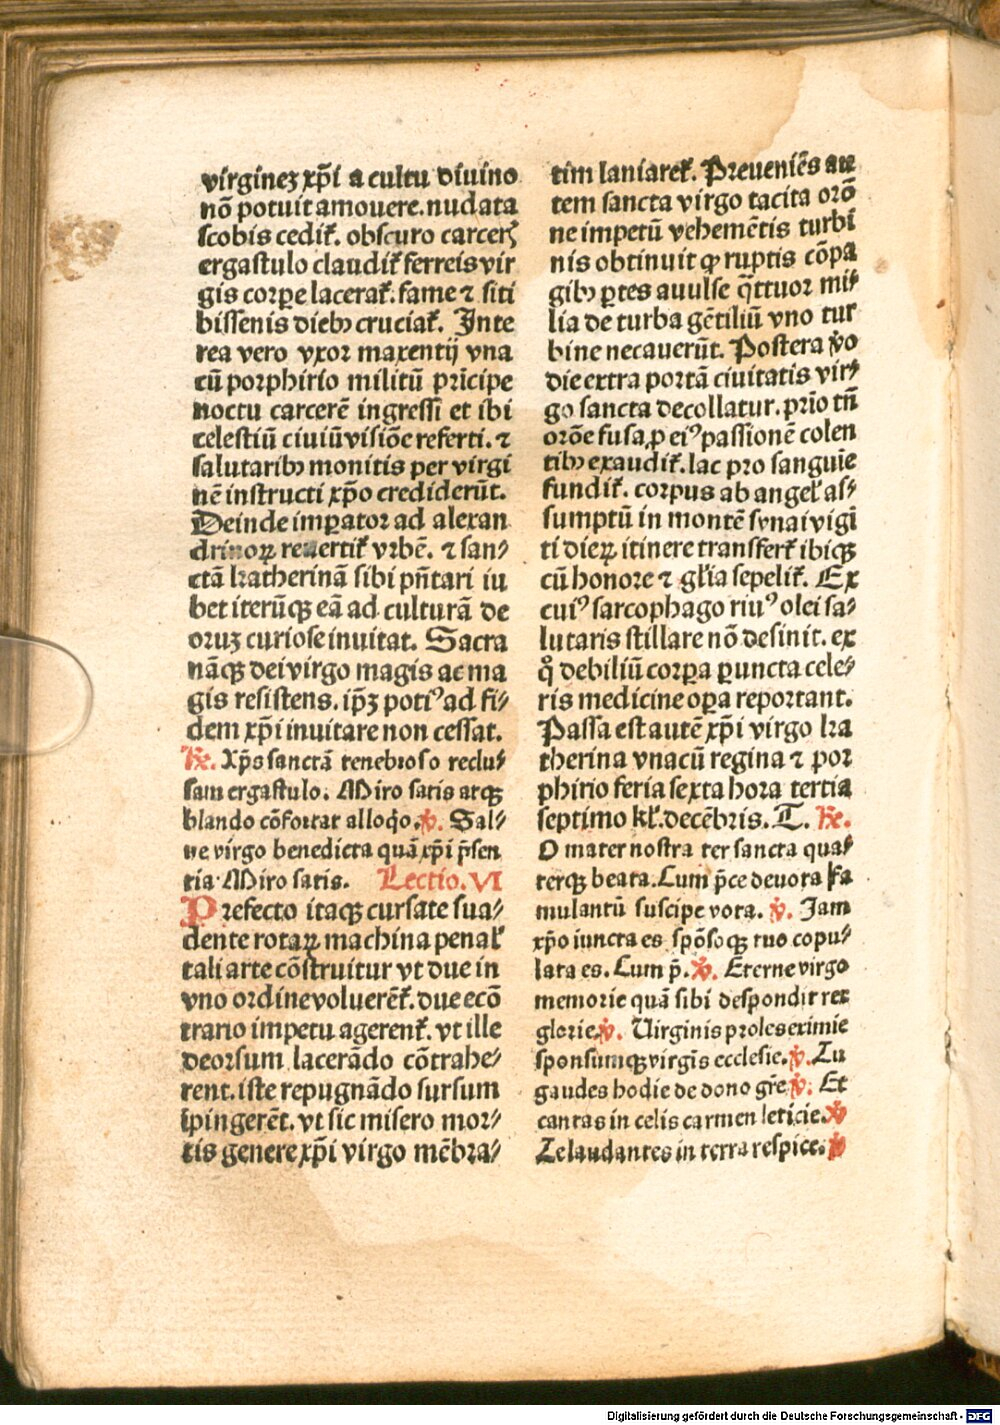 virgineꝫ xp̄i a cultu diuino
nō potuit amouere. nudata
scobis cedit᷑. obscuro carceris
ergastulo claudit᷑ ferreis vir
gis corꝑe lacerat᷑. fame ⁊ siti
bissenis dieb⁹ cruciat᷑. Inte
rea vero vxor maxentij vna
cū porphirio militū prīcipe
noctu carcerē ingressi et ibi
celestiū ciuiū visiōe referti. ⁊
salutarib⁹ monitis per virgi
nē instructi xp̄o crediderūt.
Deinde imꝑator ad alexan
drinoꝝ reuertit᷑ vrbē. ⁊ san⸗
ctā katherinā sibi pn̄tari iu
bet iterūqꝫ eā ad culturā de
oruꝫ curiose inuitat. Sacra
nāqꝫ dei virgo magis ac ma
gis resistens. ip̄ꝫ poti⁹ ad fi⸗
dem xp̄i inuitare non cessat.
R̄. Xp̄s sanctā tenebroso reclu⸗
sam ergastulo. Miro satis atqꝫ
blando cōfortat alloq̇o. v̇. Sal⸗
ue virgo benedicta quā xp̄i p̄sen
tia. Miro satis. Lectio. VI
Prefecto itaqꝫ cursate sua⸗
dente rotaꝝ machina penal᷑
tali arte cōstruitur vt due in
vno ordine voluerēt᷑. due ecō
trario impetu agerent᷑. vt ille
deorsum lacerādo cōtrahe⸗
rent. iste repugnādo sursum
īpingerēt. vt sic misero mor⸗
tis genere xp̄i virgo mēbra⸗
tim laniaret᷑. Preueniēs au
tem sancta virgo tacita orō
ne impetū vehemētis turbi
nis obtinuit ꝙ ruptis cōpa
gib⁹ ꝑtes auulse q̄ttuor mi⸗
lia de turba gētiliū vno tur
bine necauerūt. Postera v̇o
die extra portā ciuitatis vir⸗
go sancta decollatur. pri͞o tn̄
orōe fusa ꝓ ei⁹ passionē colen
tib⁹ exaudit᷑. lac pro sanguīe
fundit᷑. corpus ab angel᷑ as⸗
sumptū in montē synai vigī
ti dieꝝ itinere transfert᷑ ibiqꝫ
cū honore ⁊ gl᷑ia sepelit᷑. Ex
cui⁹ sarcophago riu⁹ olei sa⸗
lutaris stillare nō desinit. ex
q̊ debiliū corꝑa ꝑuncta cele⸗
ris medicine oꝑa reportant.
Passa est autē xp̄i virgo ka
therina vnacū regina ⁊ por
phirio feria sexta hora tertia
septimo kl᷑. decēbris. T. R̄.
O mater nostra ter sancta qua⸗
terqꝫ beata. Cum p̄ce deuota fa
mulantū suscipe vota. v̇. Jam
xp̄o iuncta es spōsoqꝫ tuo copu⸗
lata es. Cum p̄. v̇. Eterne virgo
memorie quā sibi despondit rex
glorie. v̇. Uirginis proles eximie
sponsumqꝫ virgīs ecclesie. v̇. Tu
gaudes hodie de dono gr̄e v̇. Et
cantas in celis carmen leticie. v̇
Te laudantes in terra respice. v̇